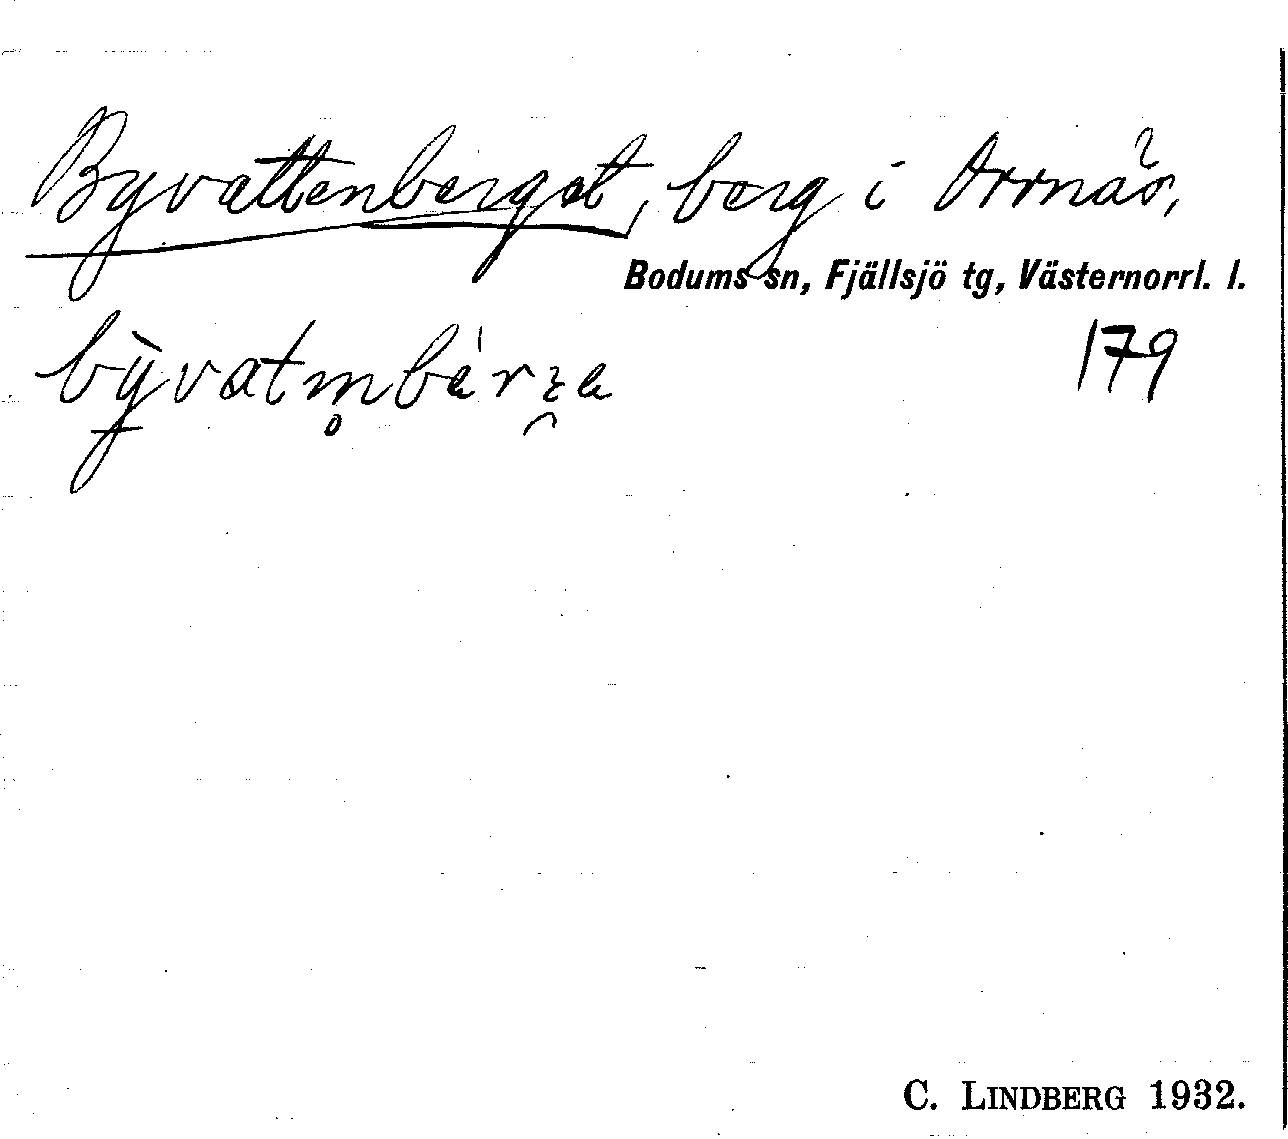 Byvattenberget, berg i Orrnäs,
Bodums sn, Fjällsjö tg, Västernorrl. l.
179
C. LINDBERG 1932.